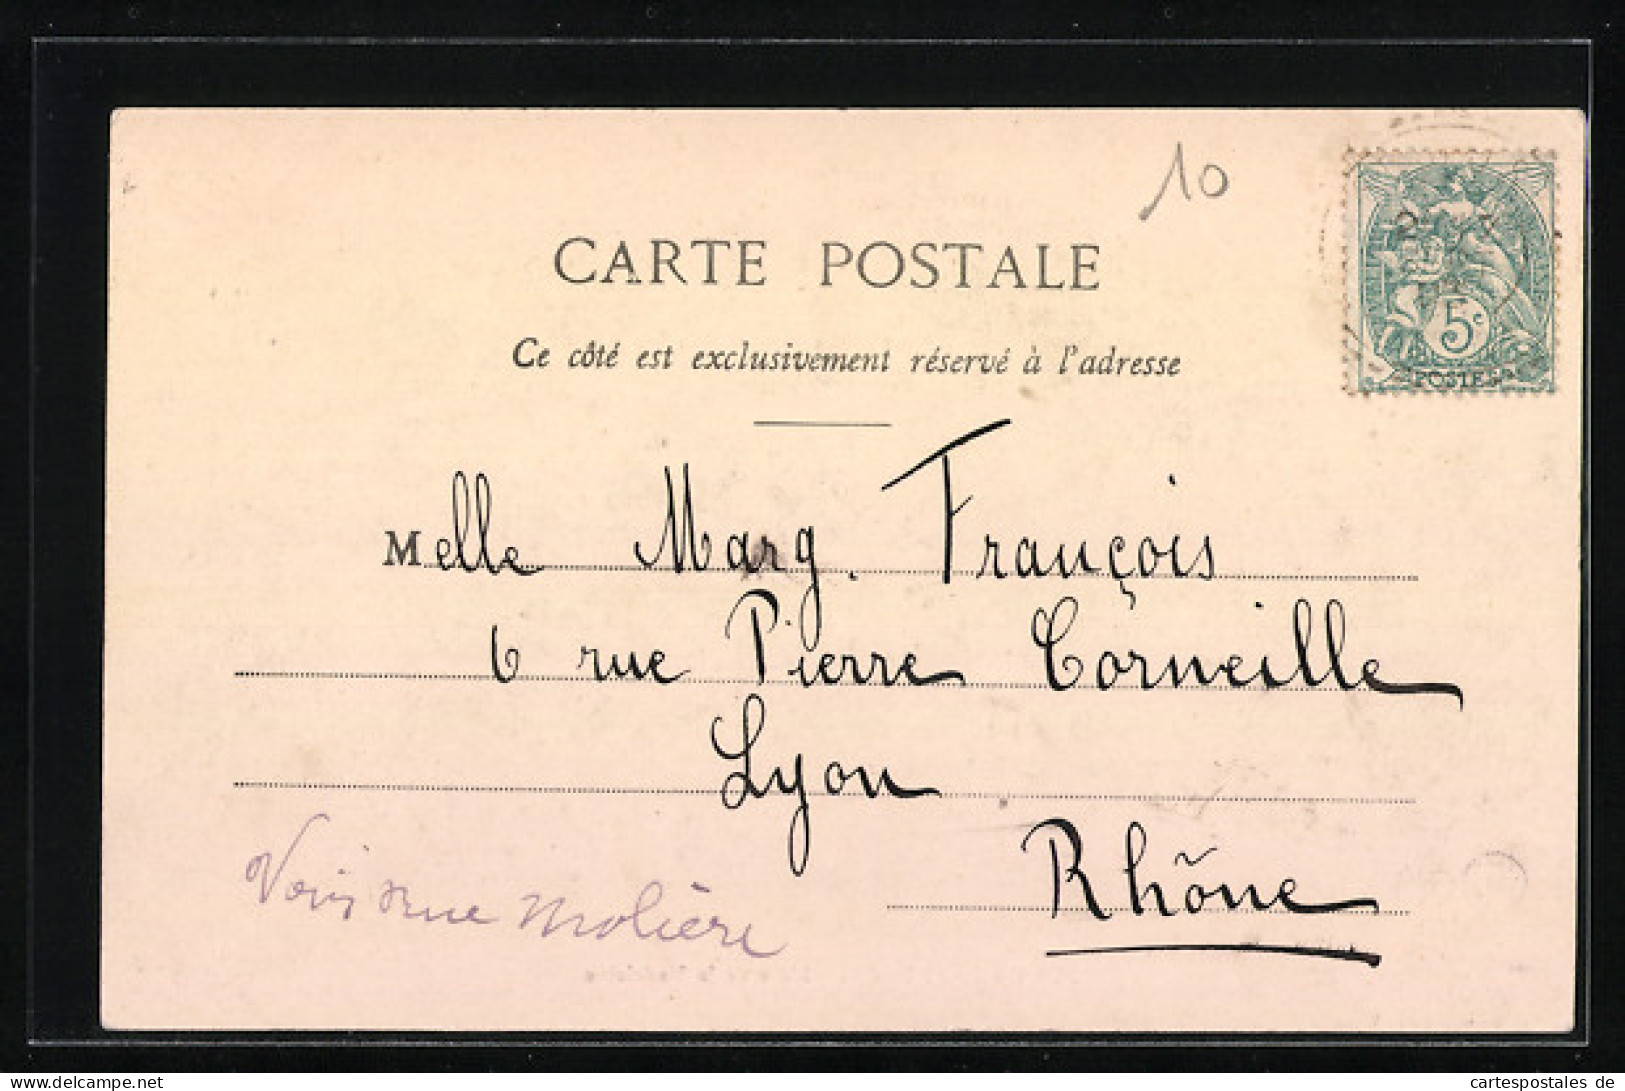 10
CARTE POSTALE
Ce côté est exclusivement réservé à l'adresse
5c
POSTES
Melle Marg. François
6 rue Pierre Corneille
Lyon
Rhône
rue Molière
cartespostales de